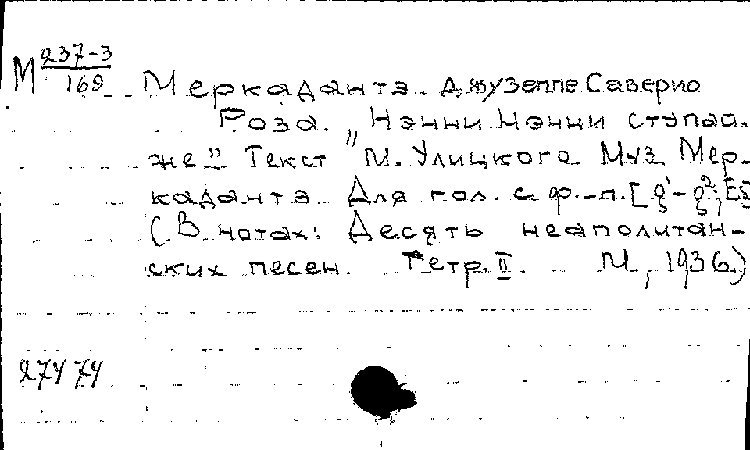 М 237-3
169 Меркаданте Джузеппе Саверио
Роза. „Нэнни Нэнни ступай-
же" Текст М. Улицкого Муз. Мер-
каданте. Для гол. с ф.-п. [g'-g²; Es]
(В нотах: Десять неаполитан-
ских песен. Тетр. II. М, 1936)
27474